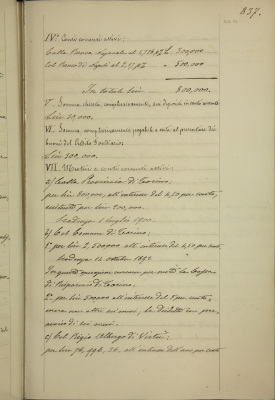 837.
IV.° Conti correnti attivi:
Colla Banca Nazionale al 1,708 p% L. 300,000
Col Banco di Napoli al 2,17 p% " 500,000
In totale Lire 800,000.
V. Somma chiesta complessivamente, coi depositi in conto corrente
Lire 20,000.
VI. Somma complessivamente pagabile a vista al presentatore dei
buoni del Credito fondiario:
Lire 100,000.
VII. Mutui e conti correnti attivi:
a) Colla Provincia di Torino,
per lire 800,000, all'interesse del 4,50 per cento,
per lire 200,000.
Scadenza 1 luglio 1900.
b) Col Comune di Torino:
1° per lire 2,500000 all'interesse del 4,50 per cento,
Scadenza 12 ottobre 1892.
In questa operazione concorre per metà la Cassa
di Risparmio di Torino.
2° per lire 500000 all'interesse del 5 per cento,
ancora non altre sei mesi, la disdetta con pre-
avviso di tre mesi.
c) Col Regio Albergo di Virtù:
per lire 76,496,34, all'interesse dell'uno per cento